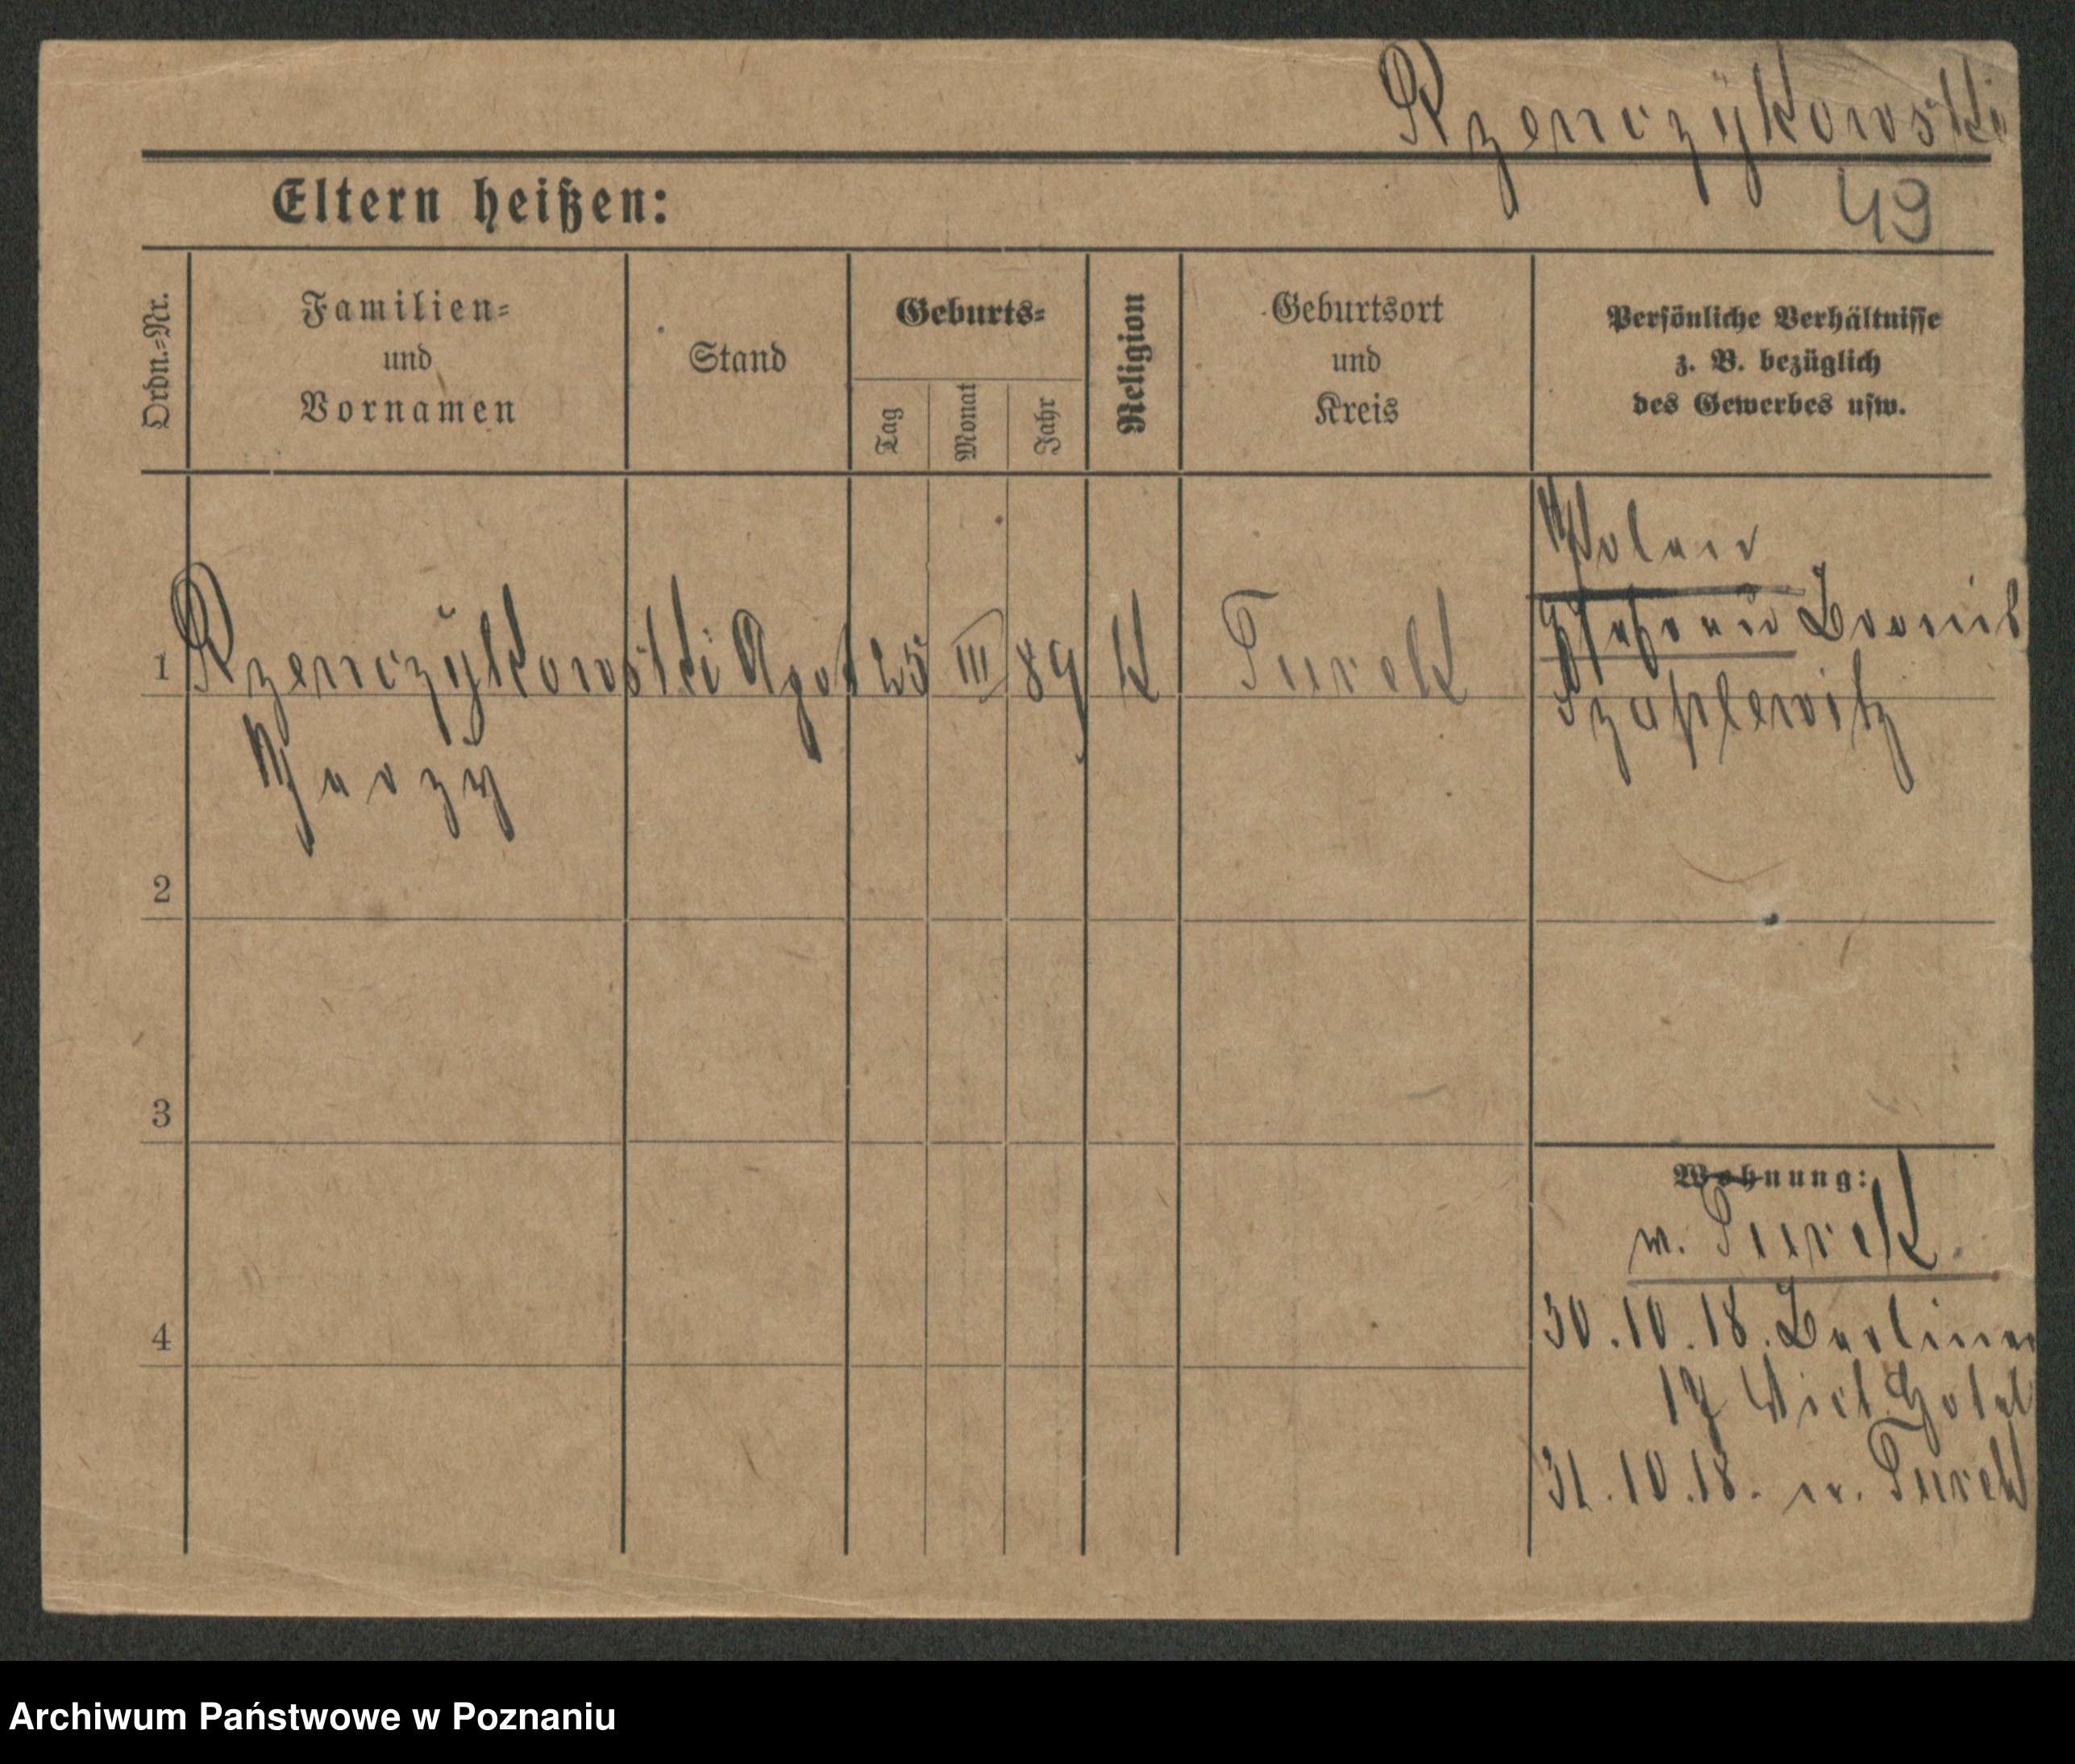 Rzenczykowski
Eltern heißen:
49
Ordn.=Nr.
Familien=
und
Vornamen
Stand
Geburts=
Tag
Monat
Jahr
Religion
Geburtsort
und
Kreis
Persönliche Verhältnisse
z. B. bezüglich
des Gewerbes usw.
Polen
1 Rzenczykowski Apot 25 III 89 K Turek
2
3
4
Wohnung:
w. Turek
30.10.18. Berliner
17 Vict Hotel
31.10.18. n. Turek
Archiwum Państwowe w Poznaniu